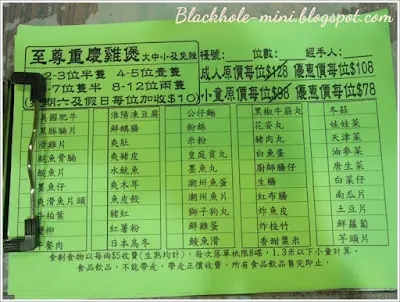 Blackhole-mini.blogspot.com
至尊重慶雞煲 大中小及免辣 檯號: 位數: 經手人:
2-3位半隻 4-5位壹隻 成人原價每位$128 優惠價每位$108
6-7位隻半 8-12位兩隻 小童原價每位$88 優惠價每位$78
期六及假日每位加收$10
美國肥牛 淮陽凍豆腐 公仔麵 黑椒牛筋丸 冬菇
黑豚腩片 鮮鵝腸 粉絲 花姿丸 娃娃菜
滑雞片 爽肚 米粉 豬肉丸 天津菜
鯇魚骨腩 爽豬皮 皇庭貢丸 白魚蛋 油麥菜
鯇魚片 水魷魚 墨魚丸 廚師腸仔 唐生菜
墨魚仔 爽木耳 潮州魚蛋 生腸 白菜仔
爽滑魚片頭 魚皮餃 潮州魚片 紅布腸 南瓜片
牛柏葉 豬紅 獅子狗丸 炸魚皮 土豆片
紅薯粉 鮮雞蛋 炸枝竹 鮮蘿蔔
日本烏冬 鰻魚滑 香甜粟米 芋頭片
食剩食物以每兩$5收費(生熟均計),每次落單祇限8碟,1.3米以下小童計算。
食品飲品,不能帶走,帶走正價收費,所有食品飲品售完即止。